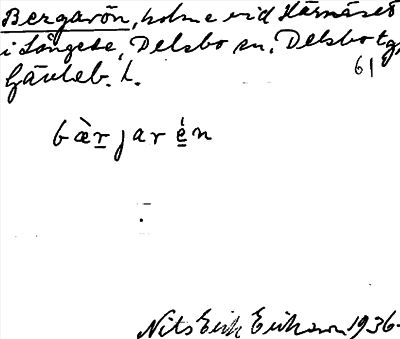 Bergarön, holme vid Stärnäset
i Långede, Delsbo sn, Delsbo tg,
Gävleb. l. 61
bæ̀rjarén
Nils Erik Erikson 1936.